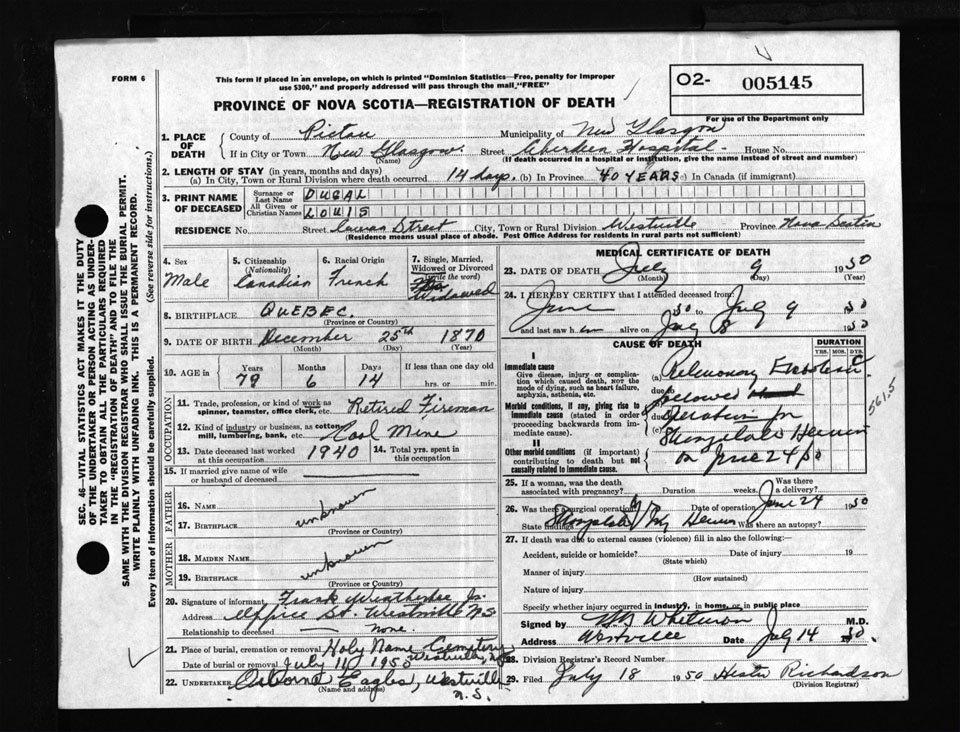 FORM 6
This form if placed in an envelope, on which is printed "Dominion Statistics—Free, penalty for improper
use $300," and properly addressed will pass through the mail "FREE"
O2- 005145
For use of the Department only
PROVINCE OF NOVA SCOTIA—REGISTRATION OF DEATH
1. PLACE OF DEATH
County of Pictou Municipality of New Glasgow
If in City or Town New Glasgow (Name) Street Aberdeen Hospital House No.
(If death occurred in a hospital or institution, give the name instead of street and number)
2. LENGTH OF STAY (in years, months and days)
(a) In City, Town or Rural Division where death occurred 14 days. (b) In Province 40 YEARS (c) In Canada (if immigrant)
3. PRINT NAME OF DECEASED
Surname or Last Name DUGAL
All Given or Christian Names LOUIS
RESIDENCE No. Street Cowan Street City, Town or Rural Division Westville Province Nova Scotia
(Residence means usual place of abode. Post Office Address for residents in rural parts not sufficient)
SEC. 46—VITAL STATISTICS ACT MAKES IT THE DUTY
OF THE UNDERTAKER OR PERSON ACTING AS UNDER-
TAKER TO OBTAIN ALL THE PARTICULARS REQUIRED
IN THE "REGISTRATION OF DEATH" AND TO FILE THE
SAME WITH THE DIVISION REGISTRAR WHO SHALL ISSUE THE BURIAL PERMIT.
WRITE PLAINLY WITH UNFADING INK. THIS IS A PERMANENT RECORD.
Every item of information should be carefully supplied. (See reverse side for instructions.)
4. Sex
Male
5. Citizenship
(Nationality)
Canadian
6. Racial Origin
French
7. Single, Married,
Widowed or Divorced
(write the word)
Widowed
8. BIRTHPLACE QUEBEC.
(Province or Country)
9. DATE OF BIRTH December 25th 1870
(Month) (Day) (Year)
10. AGE in Years Months Days If less than one day
79 6 14 hrs. or min.
OCCUPATION
11. Trade, profession, or kind of work as
spinner, teamster, office clerk, etc. Retired Fireman
12. Kind of industry or business, as cotton
mill, lumbering, bank, etc. Coal Mine
13. Date deceased last worked
at this occupation 1940
14. Total yrs. spent in
this occupation
15. If married give name of wife
or husband of deceased
FATHER
16. NAME unknown
17. BIRTHPLACE
(Province or Country)
MOTHER
18. MAIDEN NAME unknown
19. BIRTHPLACE
(Province or Country)
20. Signature of informant Frank Weatherbee Jr.
Address St. Westville NS
Relationship to deceased None.
21. Place of burial, cremation or removal Holy Name Cemetery
Westville, N.S.
Date of burial or removal July 11, 1950
22. UNDERTAKER Osborne Eagles, Westville
N.S.
(Name and address)
MEDICAL CERTIFICATE OF DEATH
23. DATE OF DEATH July 9 1950
(Month) (Day) (Year)
24. I HEREBY CERTIFY that I attended deceased from
June 1950 to July 9 1950
and last saw him alive on July 8 1950
CAUSE OF DEATH
DURATION
YRS. MOS. DYS.
I
Immediate cause
Give disease, injury or compli-
cation which caused death, NOT the
mode of dying, such as heart failure,
asphyxia, asthenia, etc.
(a) Pulmonary Embolism
due to
Morbid conditions, if any, giving rise to
immediate cause (stated in order
proceeding backwards from im-
mediate cause).
(b) followed
due to operation for
(c) Strangulated Hernia
on June 24/50
561.5
II
Other morbid conditions (if important)
contributing to death but not
causally related to immediate cause.
25. If a woman, was the death
associated with pregnancy? Duration weeks. Was there
a delivery?
26. Was there a surgical operation? Date of operation June 24 1950
State findings Strangulated Hernia Was there an autopsy?
27. If death was due to external causes (violence) fill in also the following:
Accident, suicide or homicide? Date of injury 19
Manner of injury
(How sustained)
Nature of injury
Specify whether injury occurred in industry, in home, or in public place
Signed by Whitman M.D.
Address Westville Date July 14 50.
28. Division Registrar's Record Number
29. Filed July 18 1950 Hester Richardson
(Division Registrar)